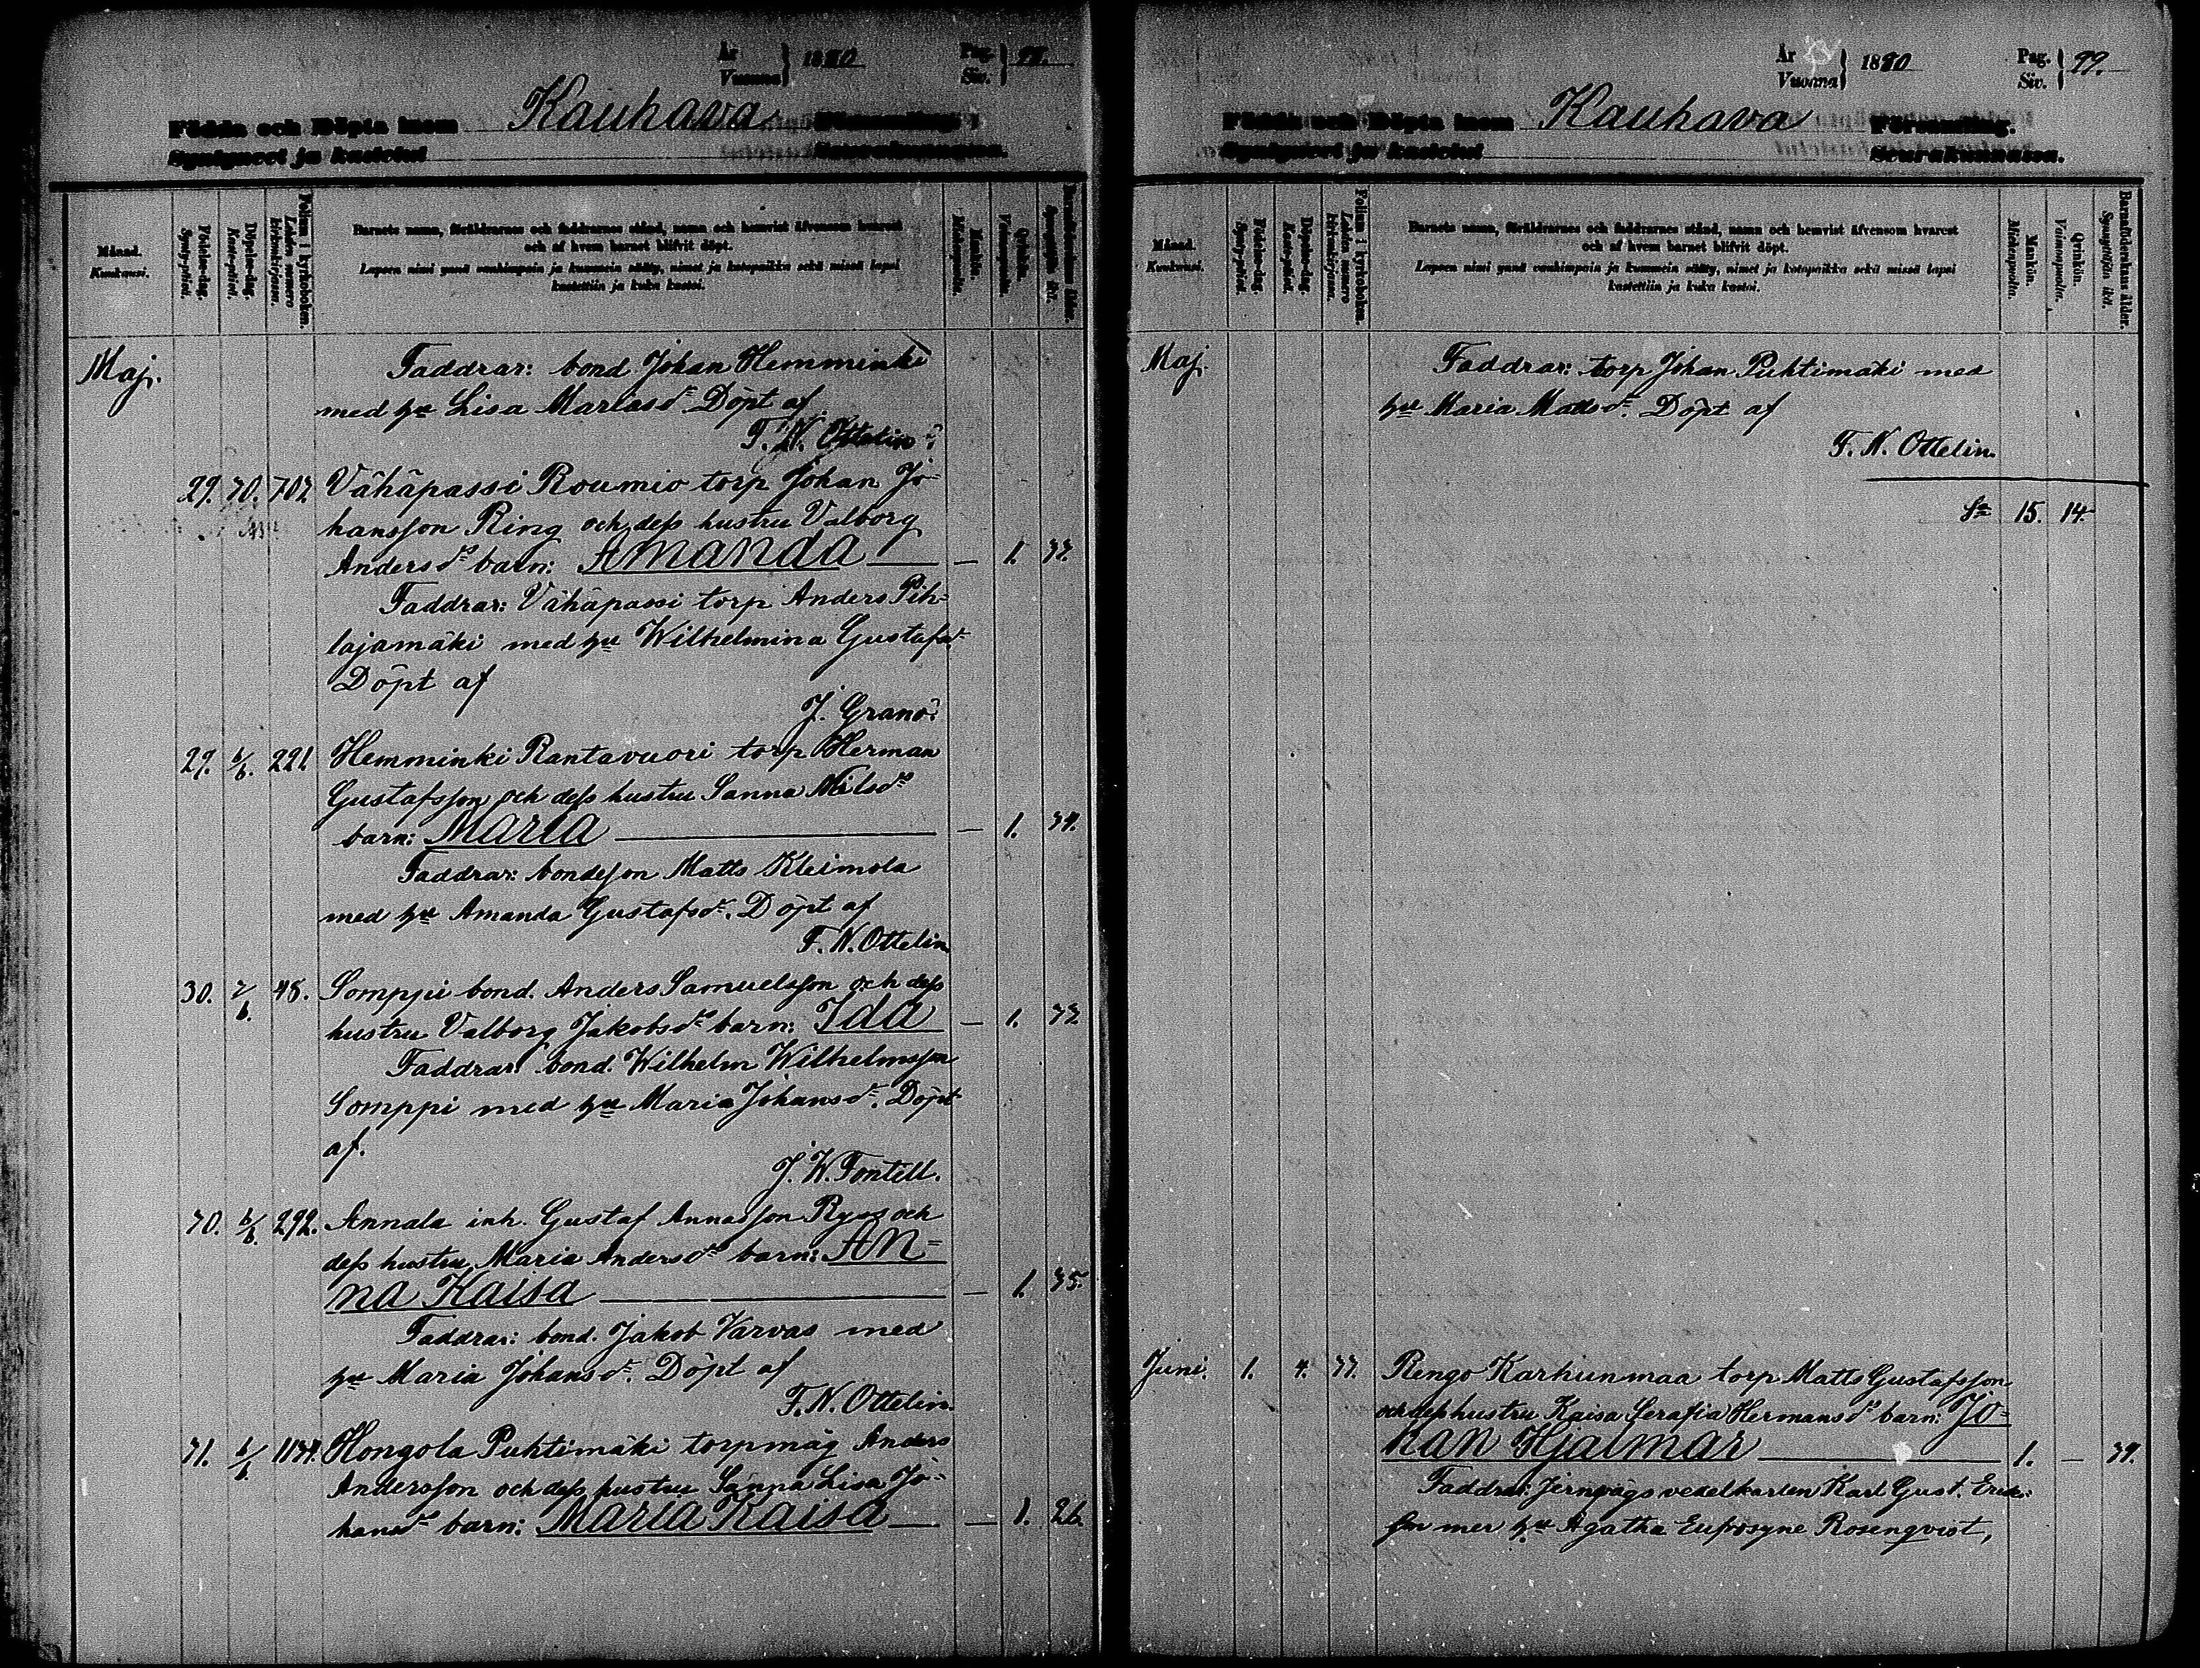 År
Vuonna } 1880
Pag.
Siv. } 98.
Födda och Döpta inom Kauhava Församling.
Syntyneet ja kastetut Seurakunnassa.
Månad.
Kuukausi.
Födelse-dag.
Synty-päivä.
Döpelse-dag.
Kaste-päivä.
Folium i kyrkoboken.
Lehden numero kirkonkirjassa.
Barnets namn, föräldrarnes och faddrarnes stånd, namn och hemvist äfvensom hvarest
och af hvem barnet blifvit döpt.
Lapsen nimi ynnä vanhimpain ja kummein sääty, nimet ja kotopaikka sekä missä lapsi
kastettiin ja kuka kastoi.
Mankön.
Miehenpuolta.
Qvinkön.
Vaimonpuolta.
Barnaföderskans ålder.
Synnyttäjän ikä.
Maj.
Faddrar: bond. Johan Hemminki
med hu Lisa Mariasdr Döpt af
F. N. Ottelin.
29. 30. 702 Vähäpassi Roumio torp Johan Jo-
hansson Ring och dess hustru Valborg
Andersdr barn: Amanda — — 1. 33.
Faddrar: Vähäpassi torp Anders Pih-
lajamäki med hu Wilhelmina Gustafsdr
Döpt af
J. Granö.
29. 6/6. 221 Hemminki Rantavuori torp Herman
Gustafsson och dess hustru Sanna Nilsdr
barn: Maria — — 1. 34.
Faddrar: bondeson Matts Kleimola
med hu Amanda Gustafsdr. Döpt af
F. N. Ottelin.
30. 2/6. 48. Somppi bond. Anders Samuelsson och dess
hustru Valborg Jakobsdr barn: Ida — 1. 33.
Faddrar: bond. Wilhelm Wilhelmsson
Somppi med hu Maria Johansdr. Döpt
af.
J. W. Fontell.
30. 6/6. 292. Annala inh. Gustaf Annasson Ryss och
dess hustru Maria Andersdr barn: An-
na Kaisa — — 1. 35.
Faddrar: bond. Jakob Varvas med
hu Maria Johansdr. Döpt af
F. N. Ottelin.
31. 6/6 1134. Hongola Puhtimäki torpmåg Anders
Andersson och dess hustru Sanna Lisa Jo-
hansdr barn: Maria Kaisa — — 1. 26.
År
Vuonna } 1880
Pag.
Siv. } 99.
Födda och Döpta inom Kauhava Församling.
Syntyneet ja kastetut Seurakunnassa.
Månad.
Kuukausi.
Födelse-dag.
Synty-päivä.
Döpelse-dag.
Kaste-päivä.
Folium i kyrkoboken.
Lehden numero kirkonkirjassa.
Barnets namn, föräldrarnes och faddrarnes stånd, namn och hemvist äfvensom hvarest
och af hvem barnet blifvit döpt.
Lapsen nimi ynnä vanhimpain ja kummein sääty, nimet ja kotopaikka sekä missä lapsi
kastettiin ja kuka kastoi.
Mankön.
Miehenpuolta.
Qvinkön.
Vaimonpuolta.
Barnaföderskans ålder.
Synnyttäjän ikä.
Maj.
Faddrar: torp Johan Puhtimäki med
hu Maria Mattsdr. Döpt af
F. N. Ottelin.
Sa 15. 14.
Juni. 1. 4. 33. Rengo Karhunmaa torp Matts Gustafsson
och dess hustru Kaisa Serafia Hermansdr barn: Jo-
han Hjalmar — 1. — 39.
Faddrar: Jernvägsvexelkarlen Karl Gust. Eriks-
son mer hu Agatha Eufrosyne Rosenqvist,